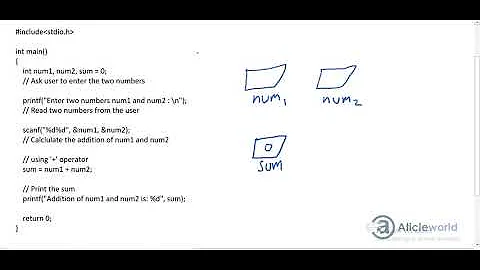 #include<stdio.h>
int main()
{
int num1, num2, sum = 0;
// Ask user to enter the two numbers
printf("Enter two numbers num1 and num2 : \n");
// Read two numbers from the user
scanf("%d%d", &num1, &num2);
// Calclulate the addition of num1 and num2
// using '+' operator
sum = num1 + num2;
// Print the sum
printf("Addition of num1 and num2 is: %d", sum);
return 0;
}
num1
num2
0
sum
a
Aticleworld